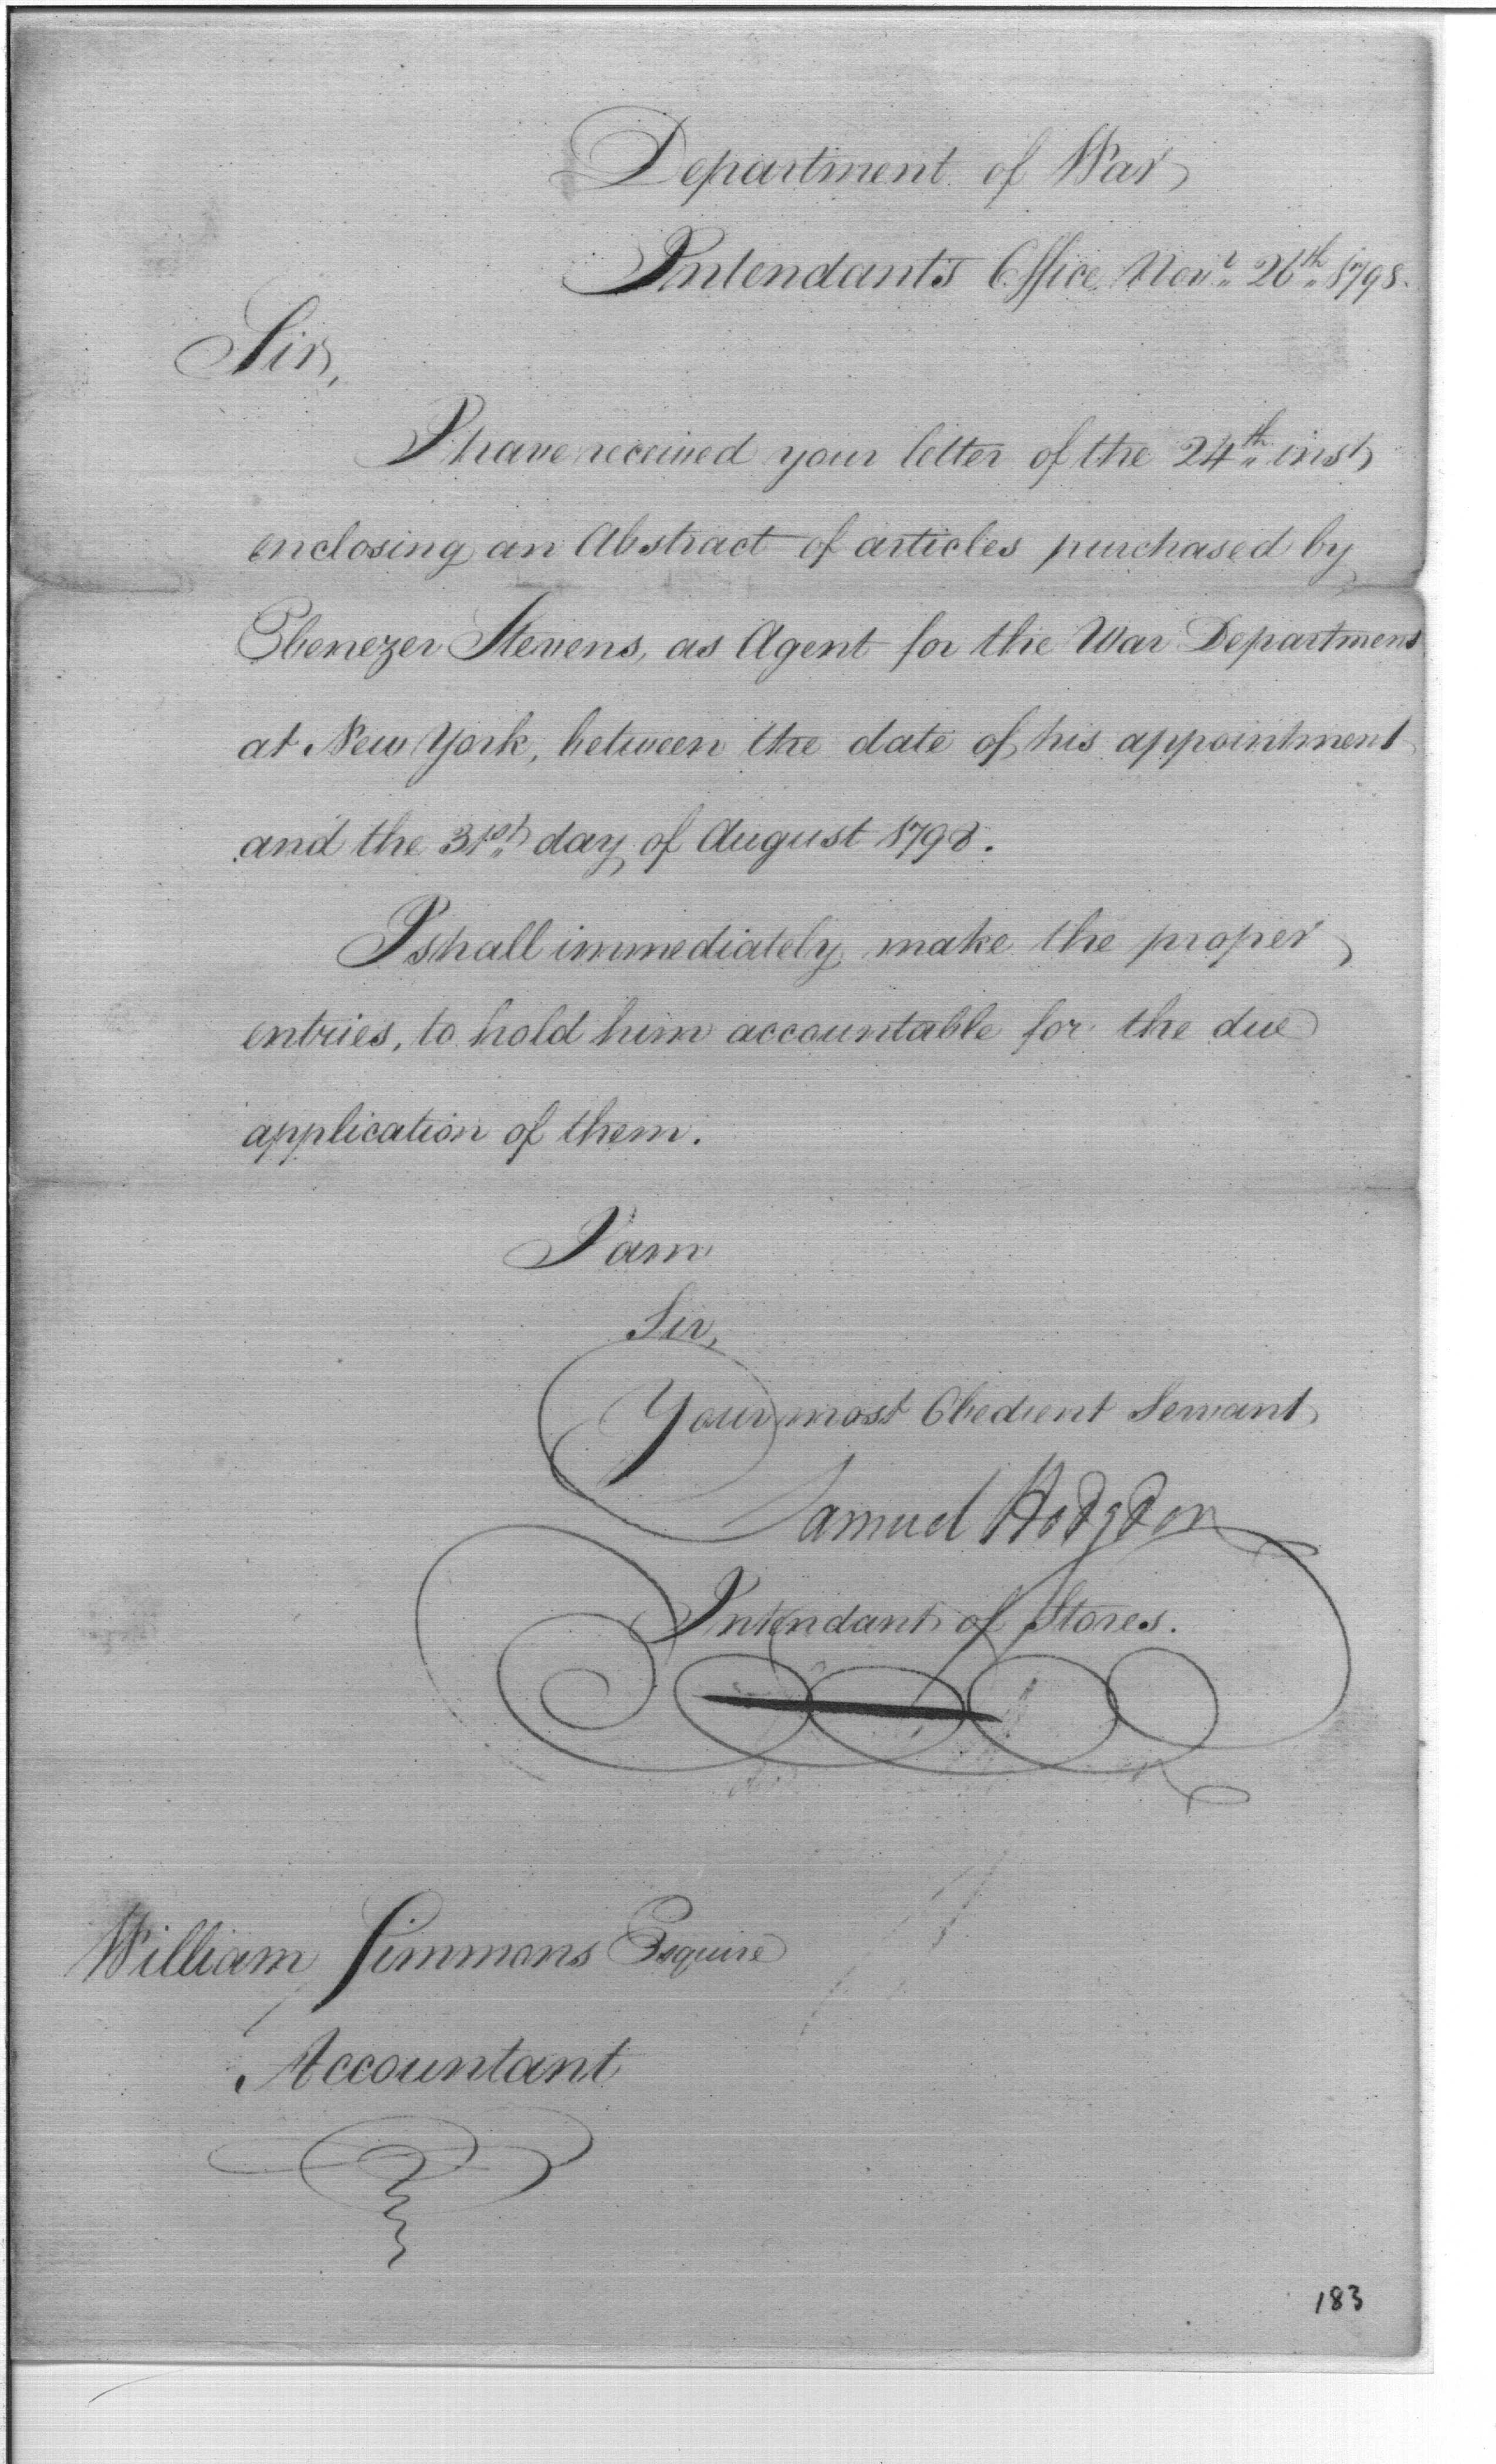 Department of War
Intendants Office Novr 26th 1798.
Sir,
I have received your letter of the 24th inst
enclosing an Abstract of articles purchased by
Ebenezer Stevens, as Agent for the War Department
at New York, between the date of his appointment
and the 31st day of August 1798.
I shall immediately make the proper
entries, to hold him accountable for the due
application of them.
I am
Sir,
Your most Obedient Servant
Samuel Hodgdon
Intendant of Stores.
William Simmons Esquire
Accountant
183